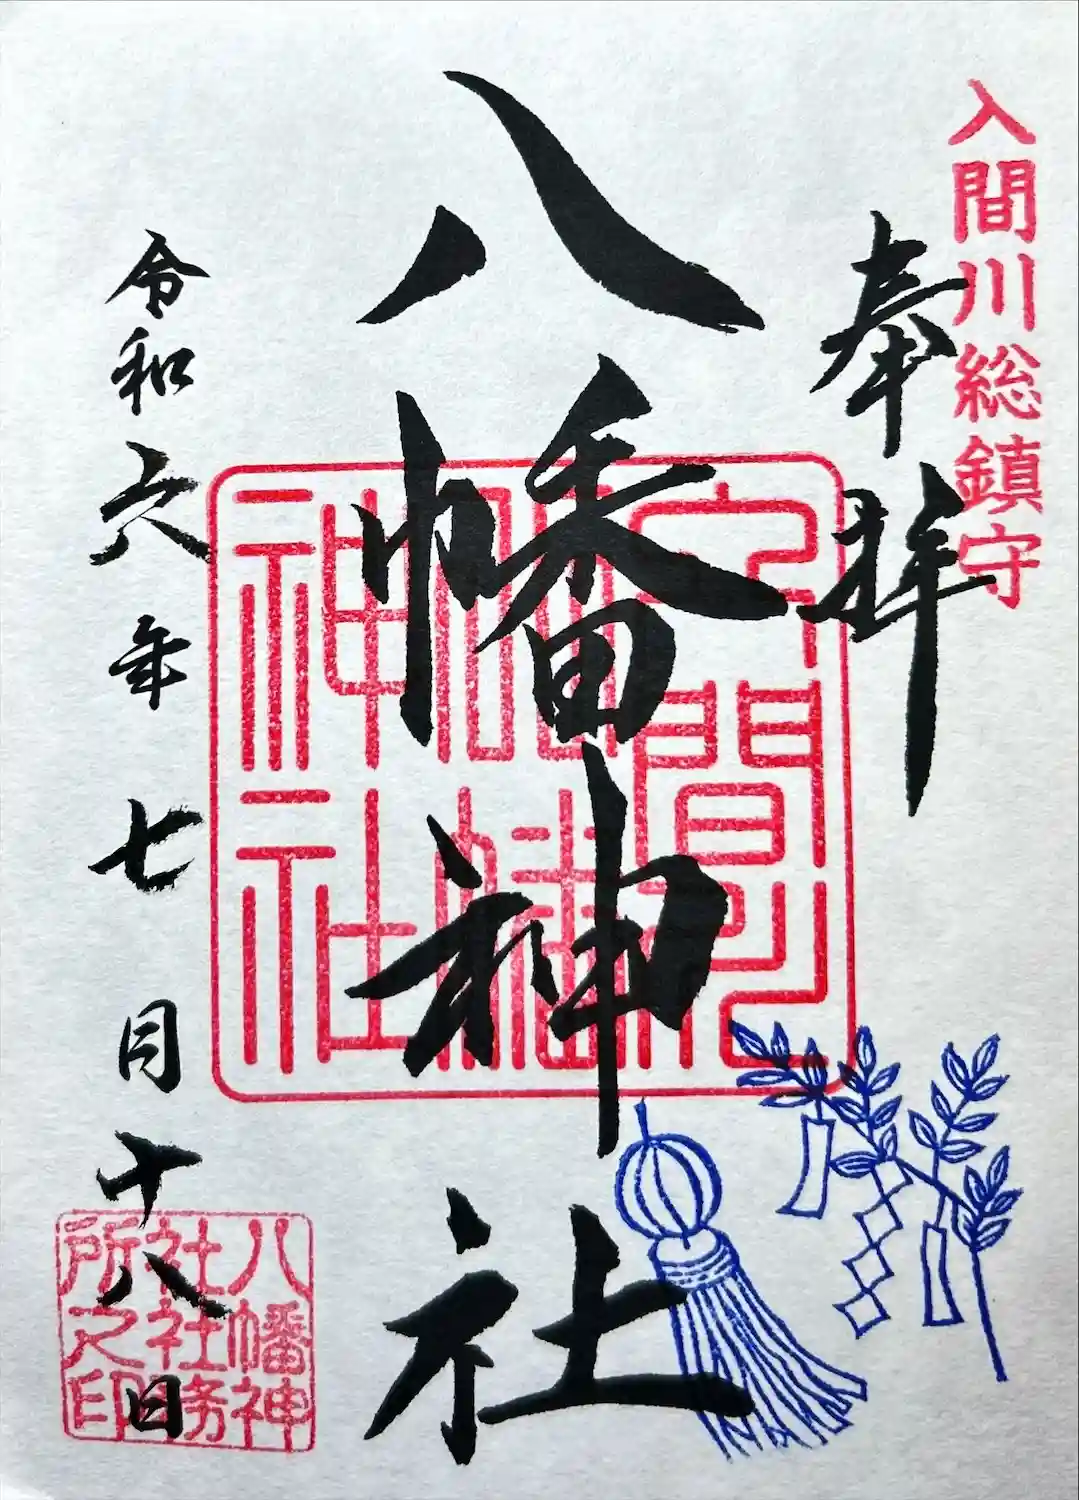 入間川総鎮守
奉拝
八幡神社
令和六年七月十八日
八幡神
社社務
所之印